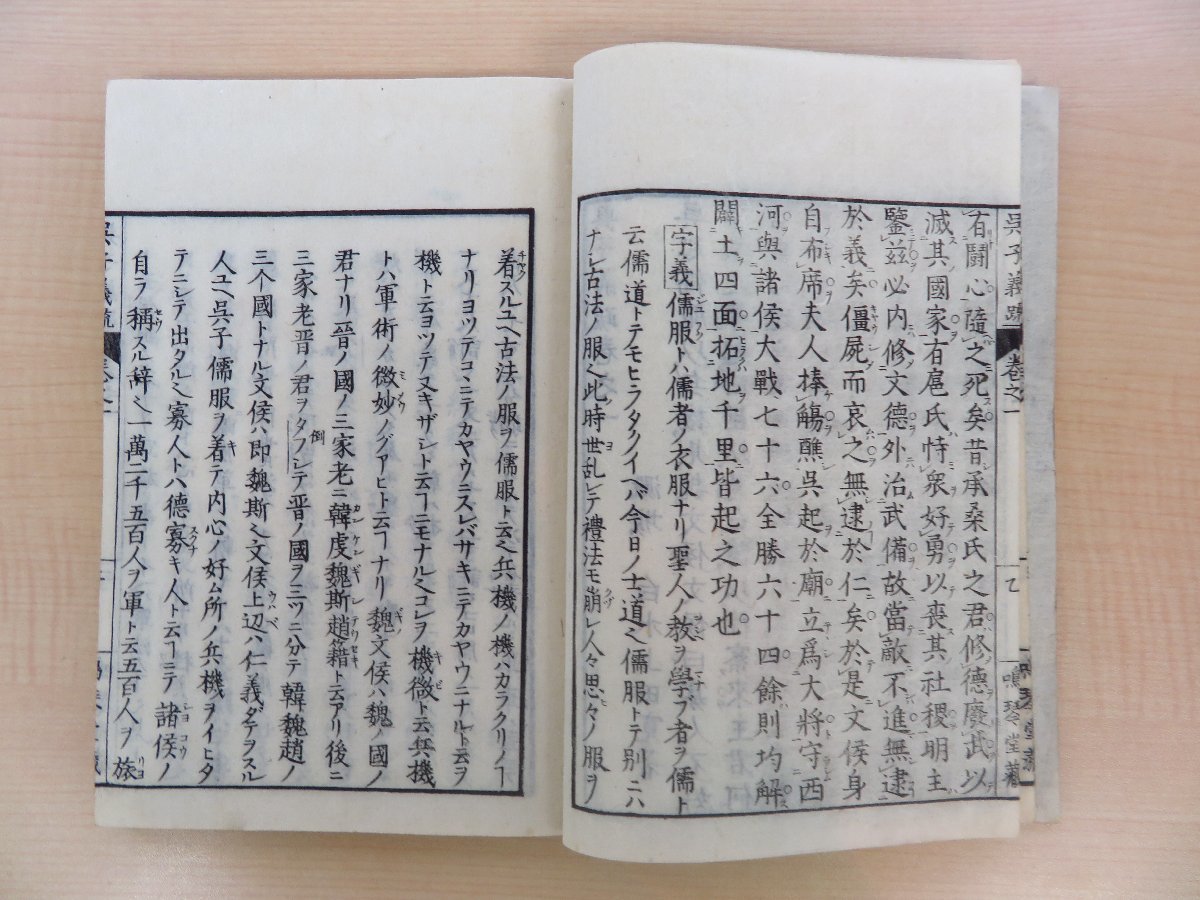 呉子義疏 卷之一
鳴琴堂藏
有鬪心隨之死矣昔承桑氏之君修德廢武以
滅其國家有扈氏恃衆好勇以喪其社稷明主
鑒茲必内修文德外治武備故當敵不進無逮
於義矣僵屍而哀之無逮於仁矣於是文侯身
自布席夫人捧觴醮呉起於廟立爲大將守西
河與諸侯大戰七十六全勝六十四餘則均解
闢土四面拓地千里皆起之功也
字義儒服トハ儒者ノ衣服ナリ聖人ノ教ヲ學ブ者ヲ儒ト
云儒道トテモヒラタクイヘバ今日ノ士道ヘ儒服トテ別ニハ
ナレ古法ノ服ヘ此時世乱レテ禮法モ崩レ人々思々ノ服ヲ
着スルユヘ古法ノ服ヲ儒服ト云ヘ兵機ノ機ハカラクリノヿ
ナリヨツテコヽニテカヤウニスレバサキニテカヤウニナルト云ヲ
機ト云ヨツテ又キザシト云ヿニモナルヘコレヲ機微ト云兵機
トハ軍術ノ微妙ノグアヒト云ヿナリ魏文侯ハ魏ノ國ノ
君ナリ晉ノ國ノ三家老ニ韓虔魏斯趙籍ト云アリ後ニ
三家老晉ノ君ヲタフレテ晉ノ國ヲ三ツニ分テ韓魏趙ノ
三个國トナル文侯ハ即魏斯ヘ文侯上辺ハ仁義ダテヲスル
人ユヘ呉子儒服ヲ着テ内心ノ好ム所ノ兵機ヲイヒタ
テニシテ出タルヘ寡人トハ德寡キ人ト云ヿニテ諸侯ノ
自ラ稱スル辭ヘ一萬二千五百人ヲ軍ト云五百人ヲ旅